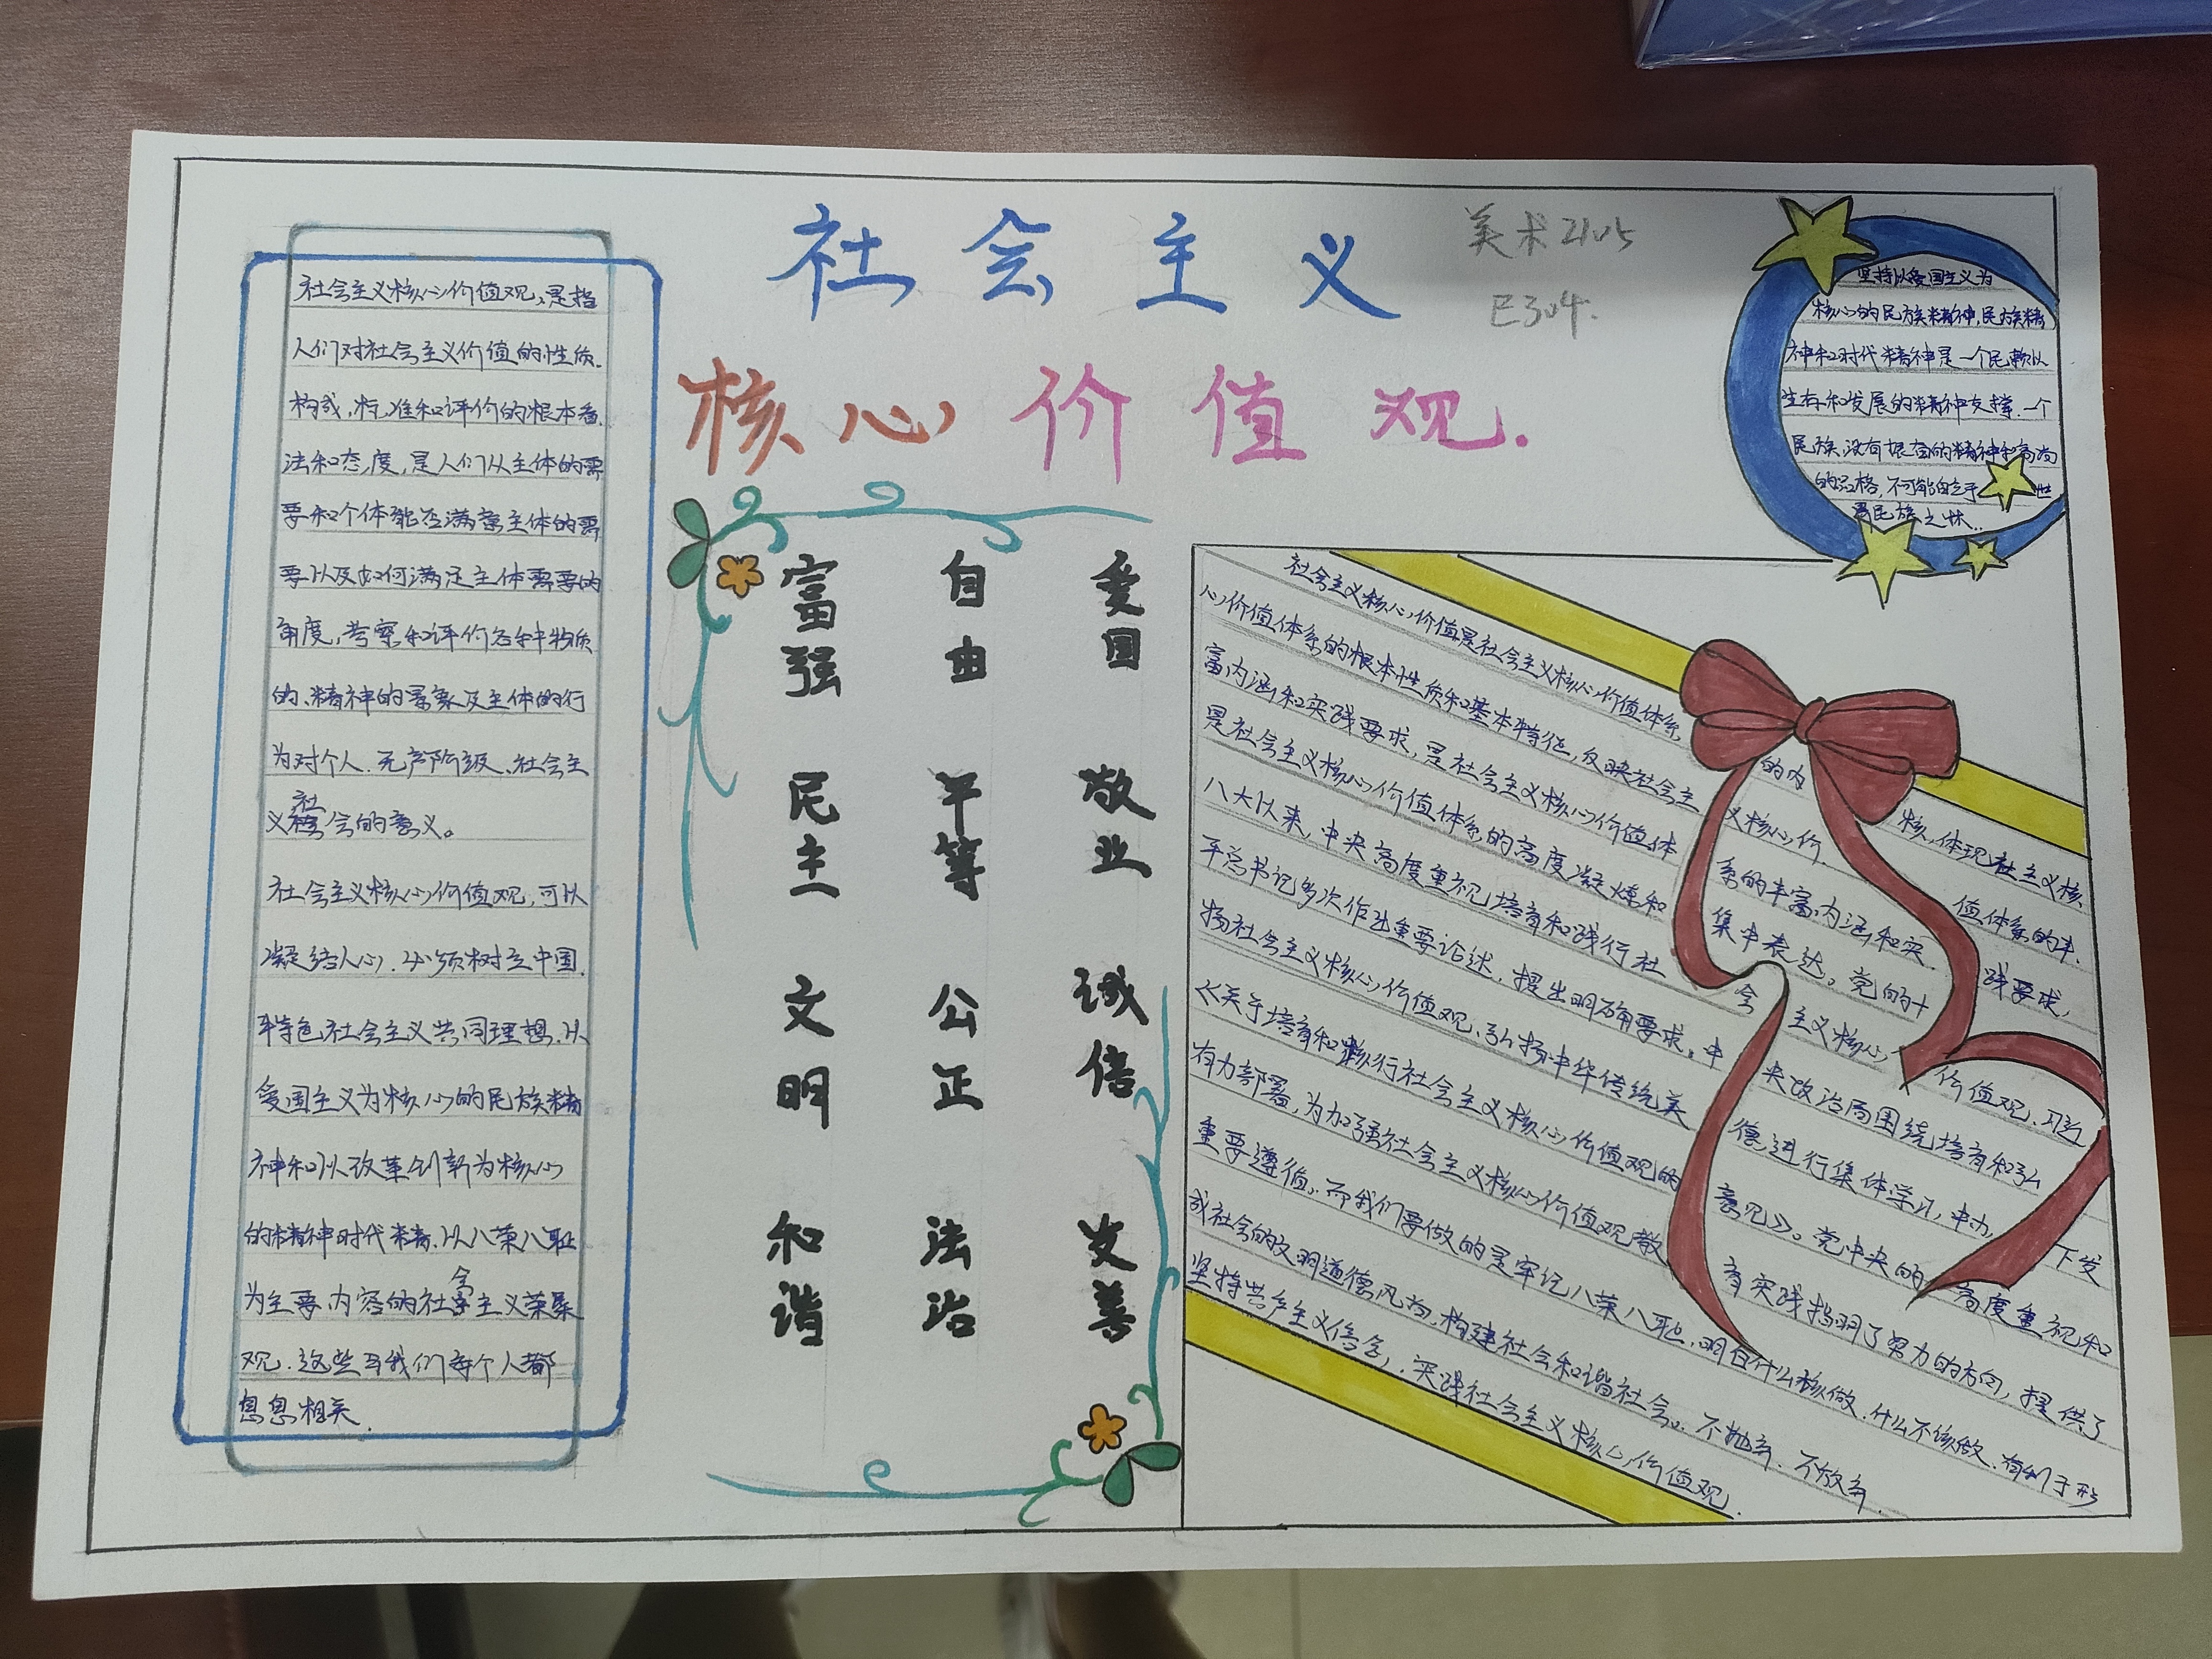 社会主义
核心价值观.
美术2105
E304.
社会主义核心价值观,是指
人们对社会主义价值的性质.
构成,标准和评价的根本看
法和态度,是人们从主体的需
要和个体能否满意主体的需
要以及如何满足主体需要的
角度,考察和评价各种物质
的、精神的景象及主体的行
为对个人.无产阶级、社会主
义社会的意义。
社会主义核心价值观,可以
凝结人心.必须树立中国.
特色社会主义共同理想.以
爱国主义为核心的民族精
神和以改革创新为核心
的精神时代精.以八荣八耻
为主要内容的社会主义荣辱
观.这些与我们每个人都
息息相关.
富强 自由 爱国
民主 平等 敬业
文明 公正 诚信
和谐 法治 友善
坚持以爱国主义为
核心的民族精神,民族精
神和时代精神是一个民赖以
生存和发展的精神支撑.一个
民族,没有振奋的精神和高尚
的品格,不可能自立于 世
界民族之林..
社会主义核心价值是社会主义核心价值体系 的内 核,体现社主义核
心价值体系的根本性质和基本特征,反映社会主 义核心价. 值体系的丰.
富内涵和实践要求,是社会主义核心价值体 系的丰富内涵和实. 践要求,
是社会主义核心价值体系的高度凝炼和 集中表达。党的十
八大以来,中央高度重视培育和践行社 会 主义核心 价值观、习近
平总书记多次作出重要论述.提出明确要求。中 央政治局围绕培育和弘
扬社会主义核心价值观、弘扬中华传统美 德进行集体学习,中办 下发
《关于培育和践行社会主义核心价值观的 意见》。党中央的高度重视和
有力部署,为加强社会主义核心价值观教 育实践指明了努力的方向,提供了
重要遵值。而我们要做的是牢记八荣八耻,明白什么核做.什么不该做.有利于形
成社会的文明道德风尚,构建社会和谐社会。不抛弃.不放弃.
坚持共产主义信念,.实践社会主义核心价值观.